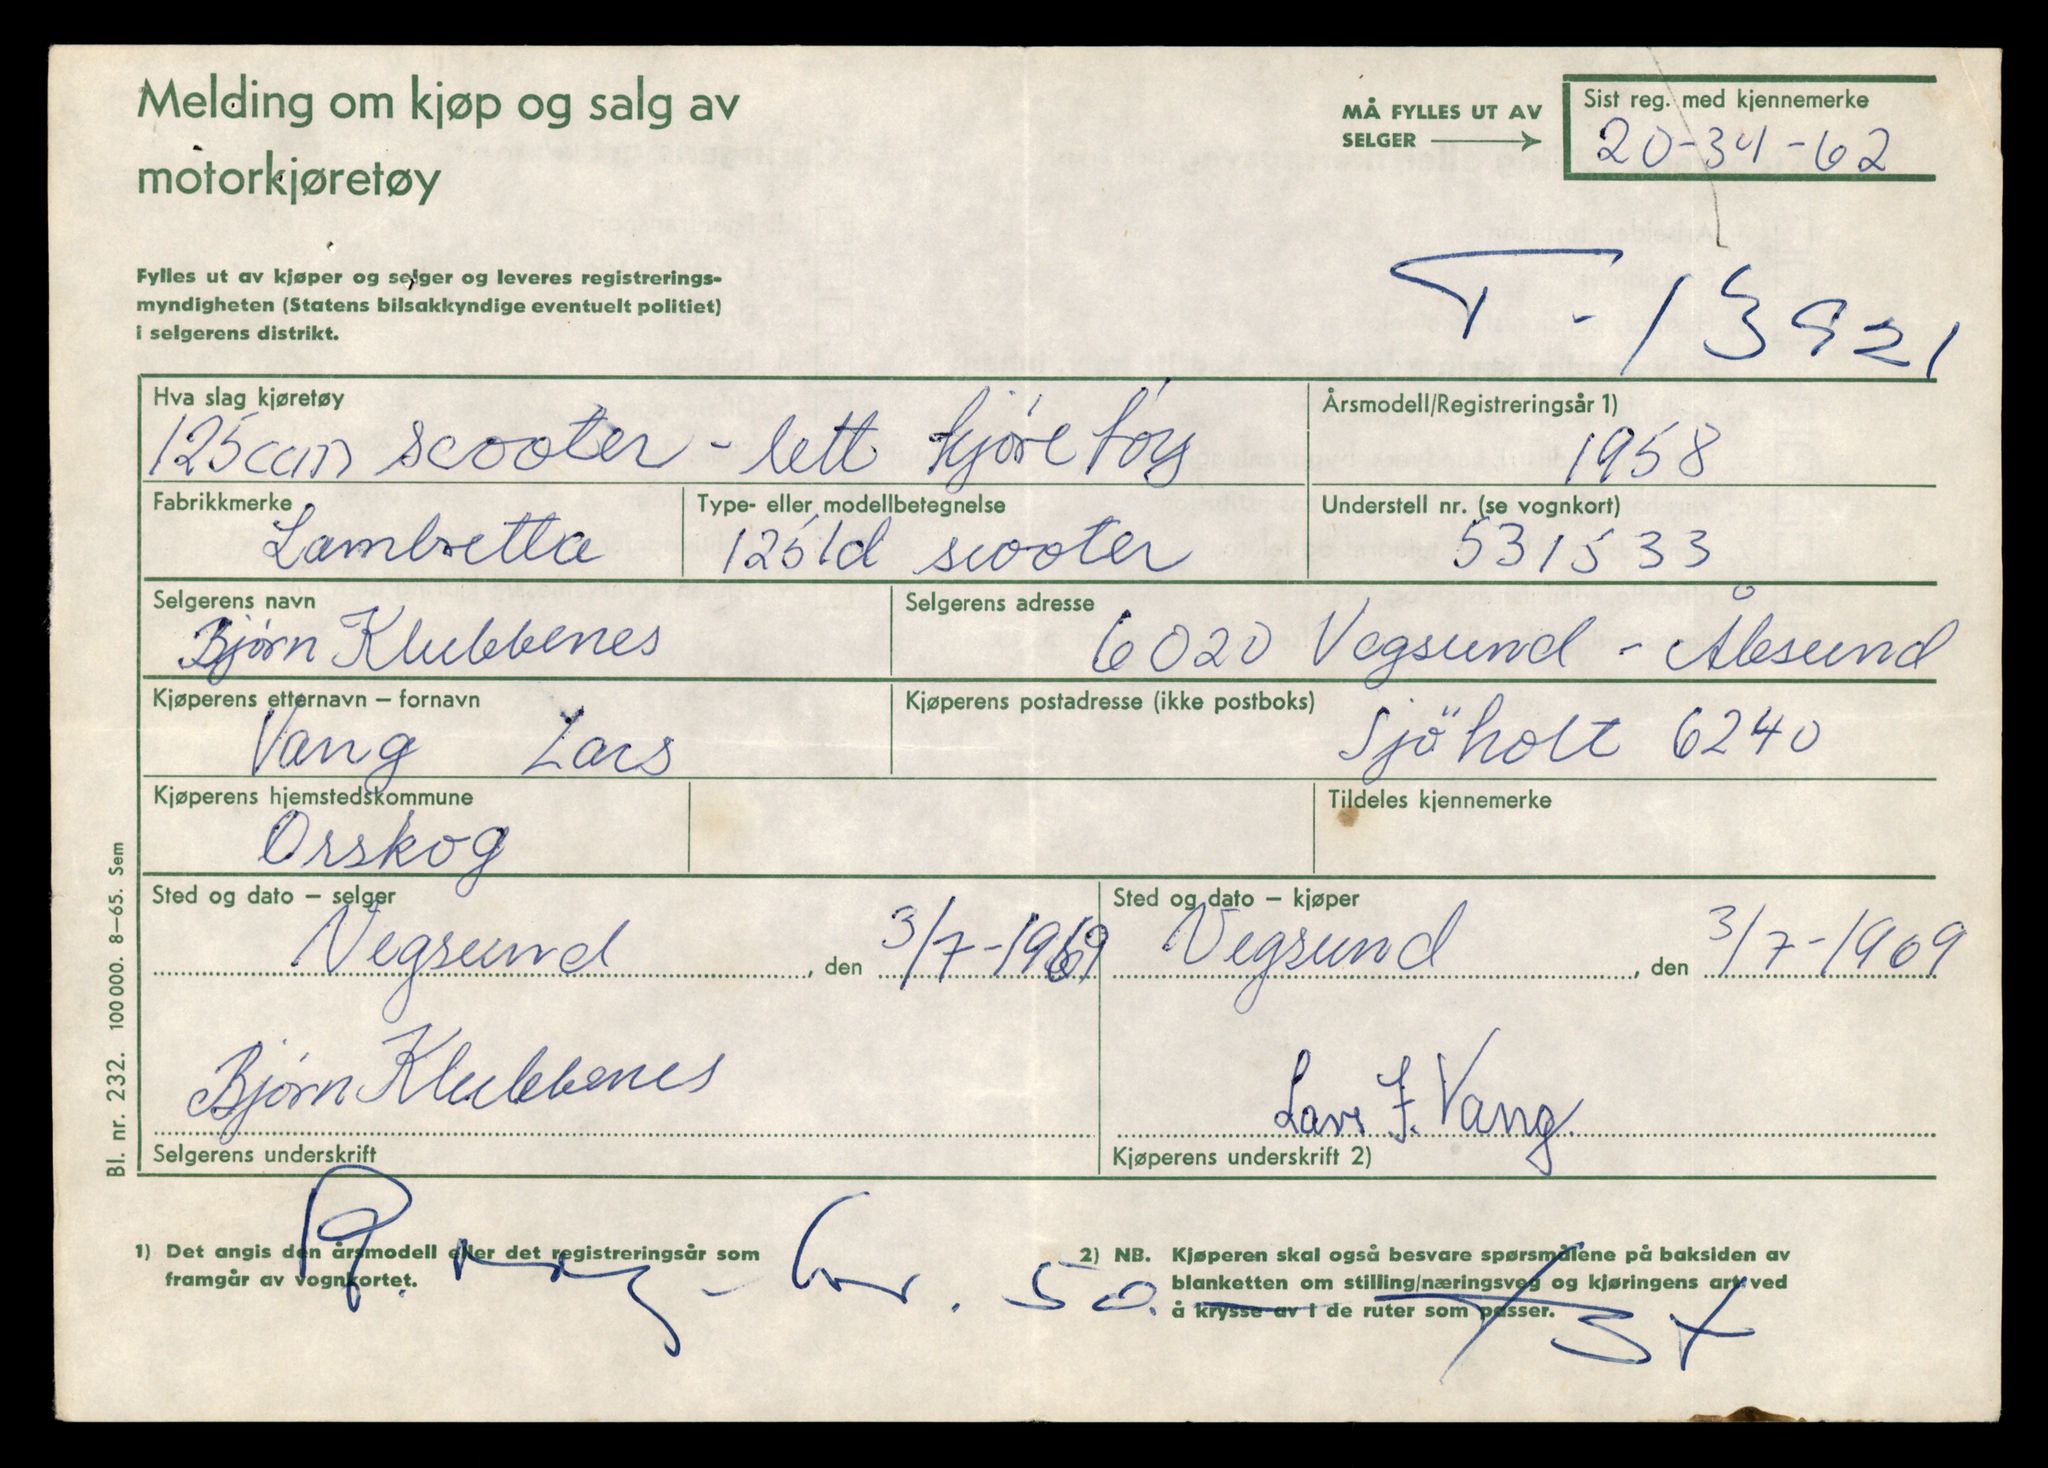 Melding om kjøp og salg av
motorkjøretøy
MÅ FYLLES UT AV
SELGER
Sist reg. med kjennemerke
20-34-62
Fylles ut av kjøper og selger og leveres registrerings-
myndigheten (Statens bilsakkyndige eventuelt politiet)
i selgerens distrikt.
T-13921
Hva slag kjøretøy
125ccm scooter - lett kjøretøy
Årsmodell/Registreringsår 1)
1958
Fabrikkmerke
Lambretta
Type- eller modellbetegnelse
125 ld scooter
Understell nr. (se vognkort)
531533
Selgerens navn
Bjørn Klubbenes
Selgerens adresse
6020 Vegsund - Ålesund
Kjøperens etternavn – fornavn
Vang Lars
Kjøperens postadresse (ikke postboks)
Sjöholt 6240
Kjøperens hjemstedskommune
Orskog
Tildeles kjennemerke
Sted og dato – selger
Vegsund, den 3/7-1969
Sted og dato – kjøper
Vegsund, den 3/7-1969
Bjørn Klubbenes
Selgerens underskrift
Lars J. Vang
Kjøperens underskrift 2)
1) Det angis den årsmodell eller det registreringsår som
framgår av vognkortet.
2) NB. Kjøperen skal også besvare spørsmålene på baksiden av
blanketten om stilling/næringsveg og kjøringens art ved
å krysse av i de ruter som passer.
50.
Bl. nr. 232. 100 000. 8–65. Sem